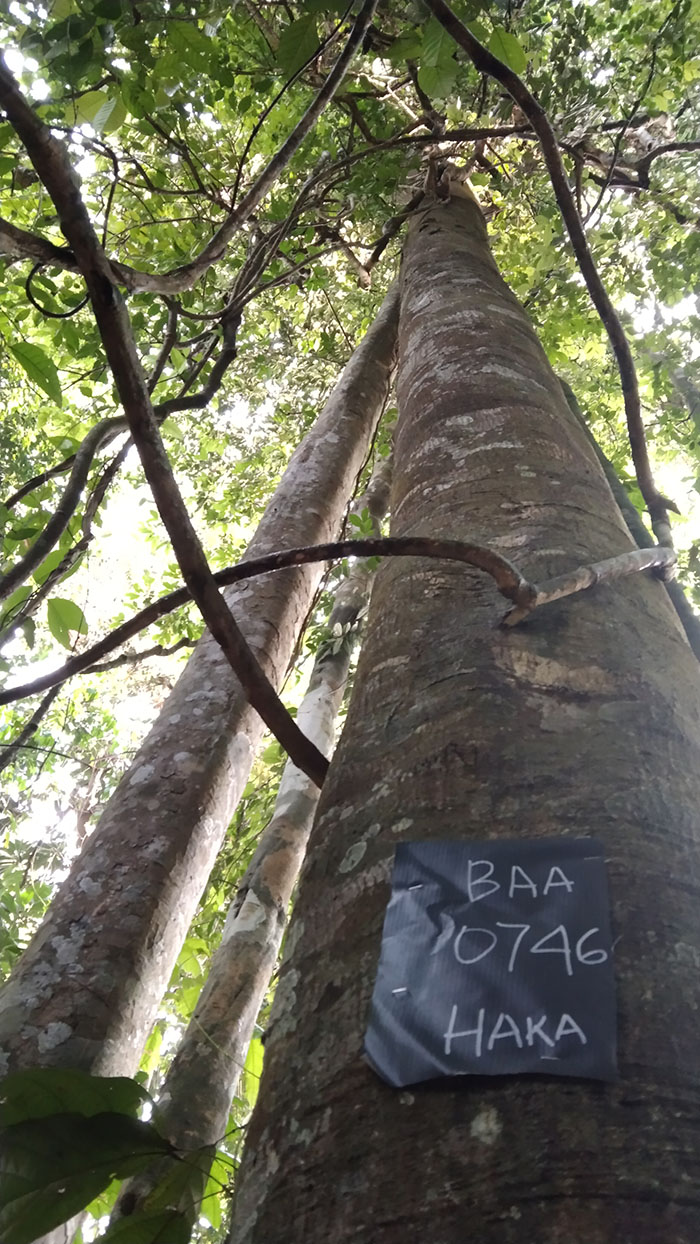 BAA
0746
HAKA